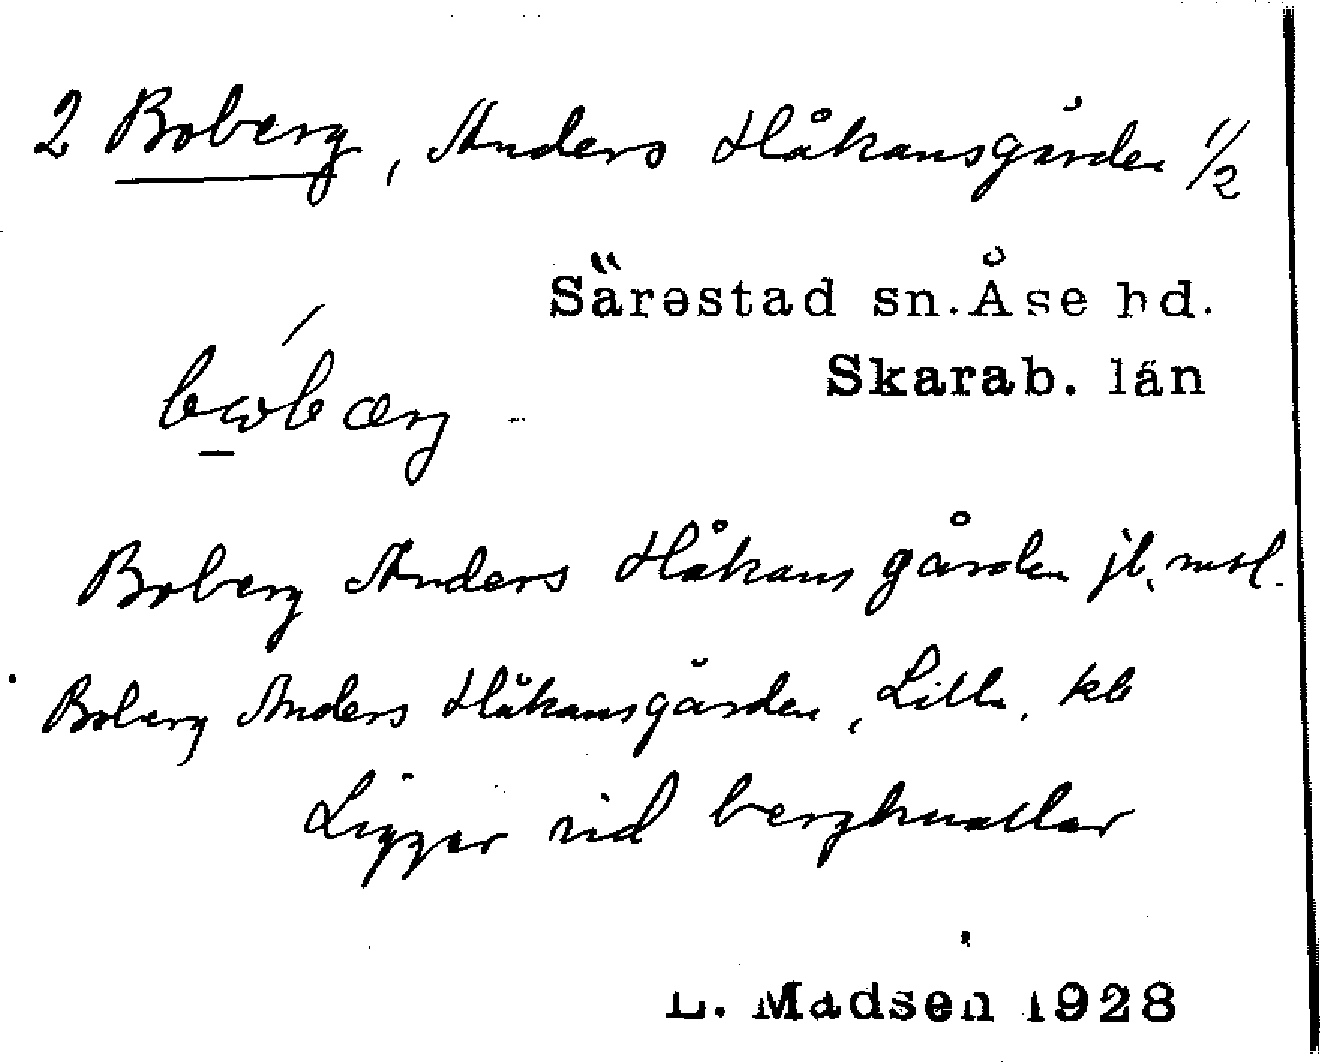 2 Boberg, Anders Håkansgården 1/2
Särestad sn. Åse hd.
Skarab. län
Boberg Anders Håkansgården jb. mtl.
Boberg Anders Håkansgården, Lilla, kb
Ligger vid bergknallar
L. Madsen 1928